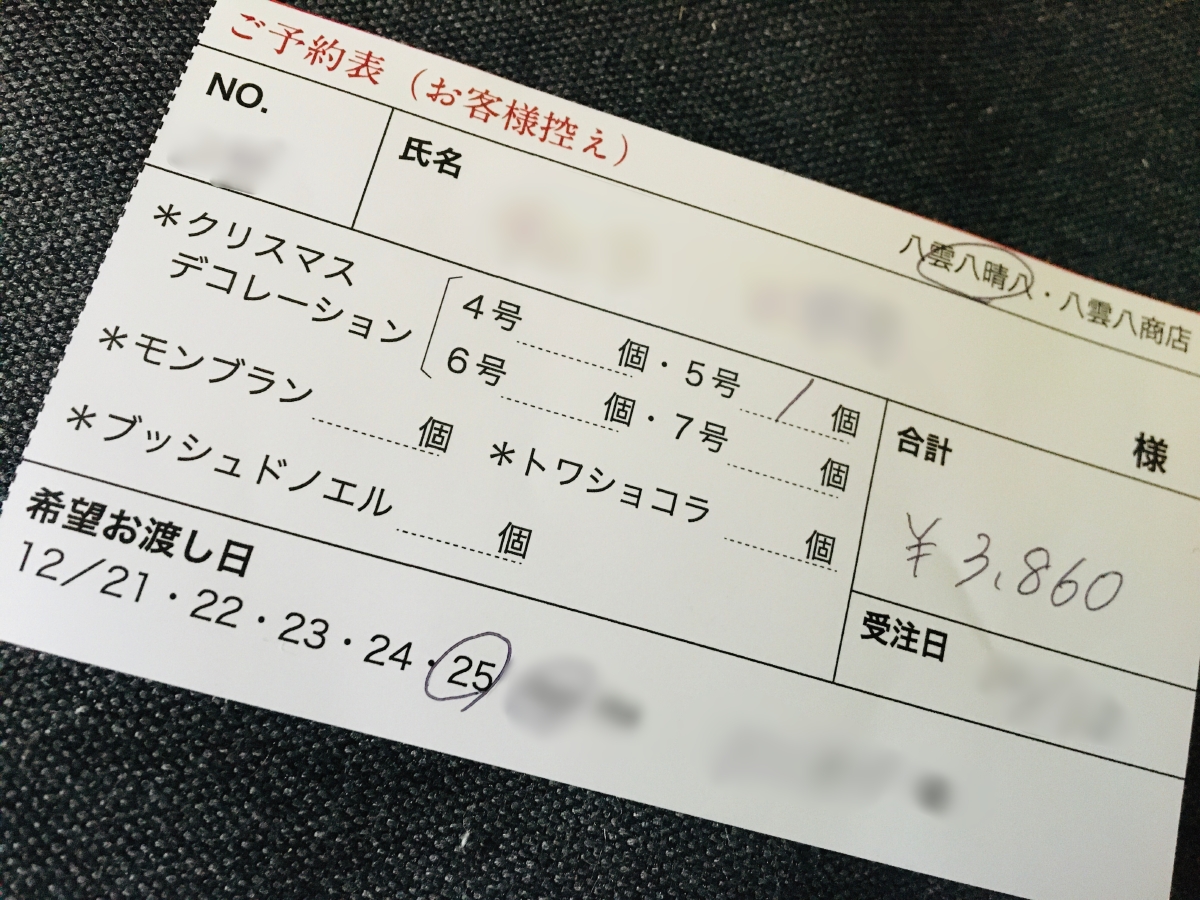 ご予約表（お客様控え）
NO.
氏名
八雲八晴八・八雲八商店
様
＊クリスマス
デコレーション
4号 個・5号 1 個
6号 個・7号 個
＊モンブラン 個 ＊トワショコラ 個
＊ブッシュドノエル 個
合計
¥3,860
受注日
希望お渡し日
12／21・22・23・24・25